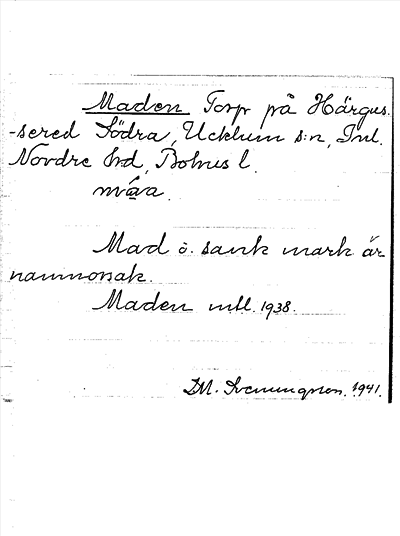 Maden Torp på Härgus-
-sered Södra, Ucklum s:n, Inl.
Nordre hd, Bohus l.
Mad o. sank mark är
namnorsak.
Maden mtl. 1938.
D.M. Svenningson. 1941.